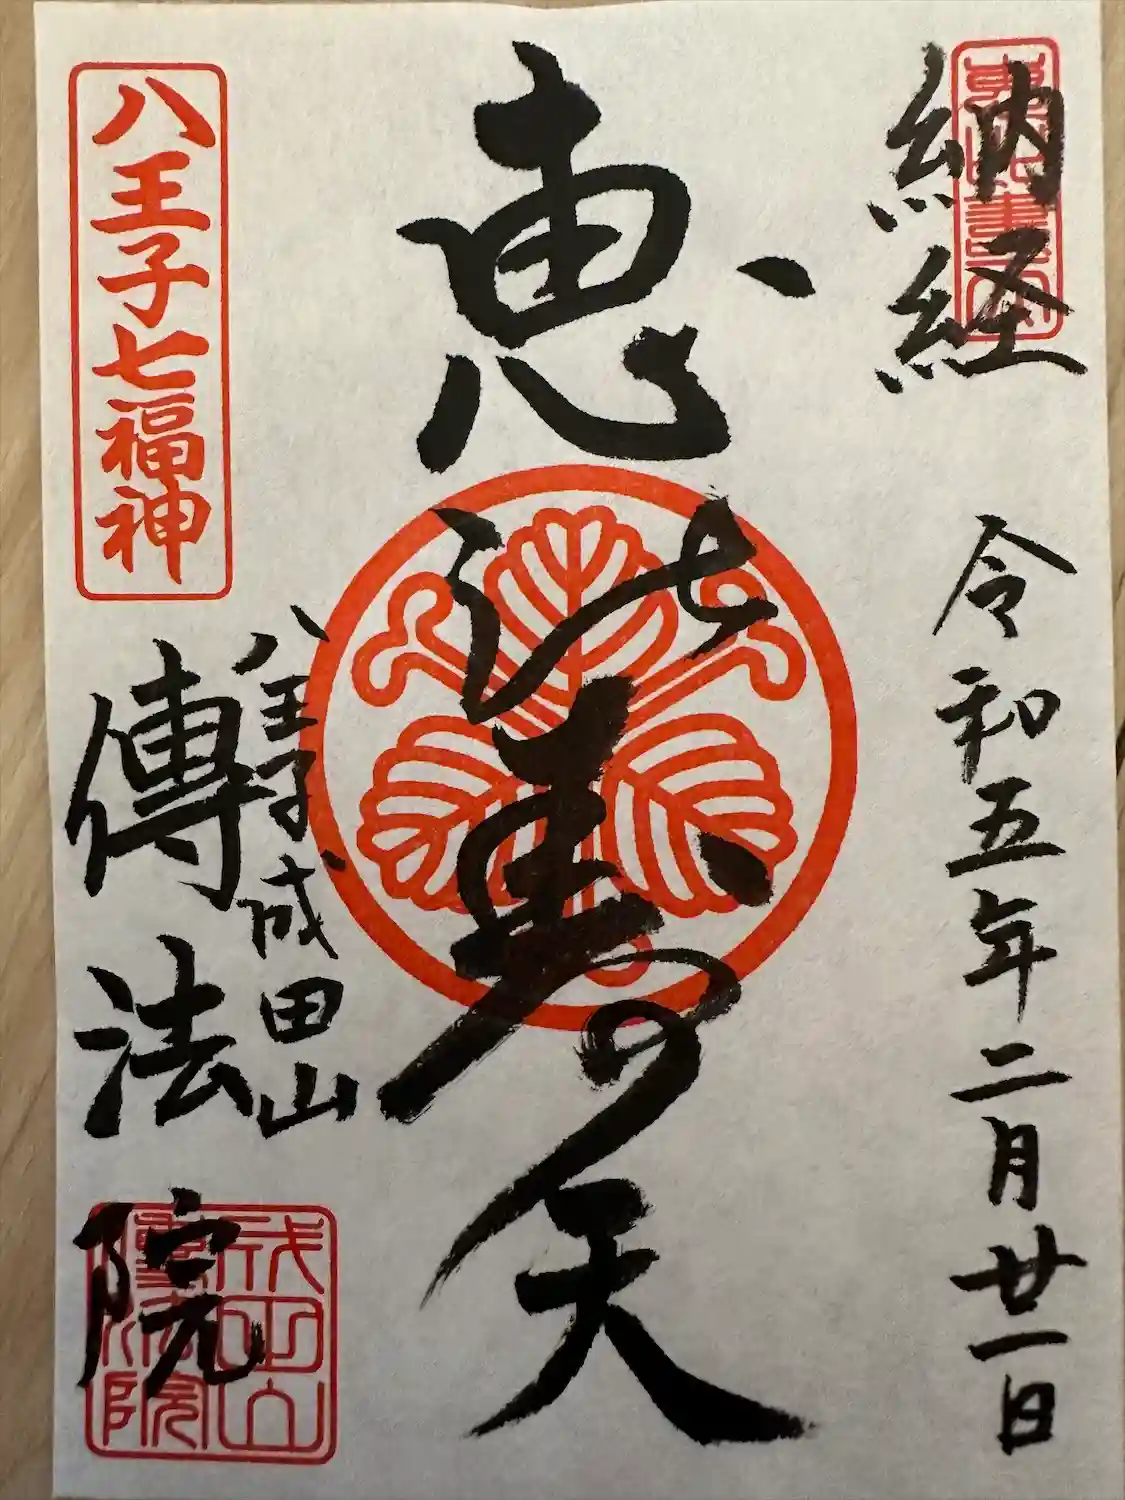 納経
令和五年二月廿一日
恵比寿天
八王子七福神
八王子成田山
傳法院
成田山
傳法院